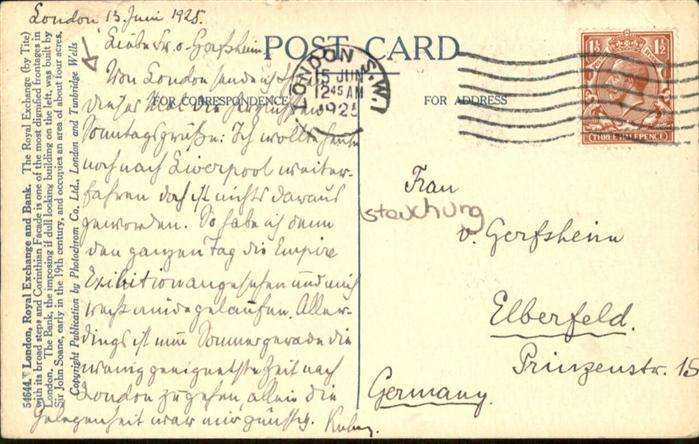 London 13. Juni 1925.
POST CARD
FOR CORRESPONDENCE
FOR ADDRESS
Liebe Fr. v. Gerfsheim
Von London sende ich
dieses Mal die herzlichsten
Sonntagsgrüße. Ich wollte heute
noch nach Liverpool weiter-
fahren doch ist nichts daraus
geworden. So habe ich denn
den ganzen Tag die Empire
Exibition angesehen und mich
recht müde gelaufen. Aller-
dings ist im Sommer gerade die
wenig geeignetste Zeit nach
London zu gehen, allein die
Gelegenheit war mir günstig.
LONDON S.W.1
15 JUN
12 45 AM
1925
1½ 1½
THREE HALFPENCE
Frau
v. Gerfsheim
stauchung
Elberfeld.
Prinzenstr. 15
Germany.
54644. V London, Royal Exchange and Bank. The Royal Exchange (by Tite)
with its broad steps and Corinthian Facade is one of the most dignified frontages in
London. The Bank, the imposing if dull looking building on the left, was built by
Sir John Soane, early in the 19th century, and occupies an area of about four acres.
Copyright Publication by Photochrom Co., Ltd., London and Tunbridge Wells